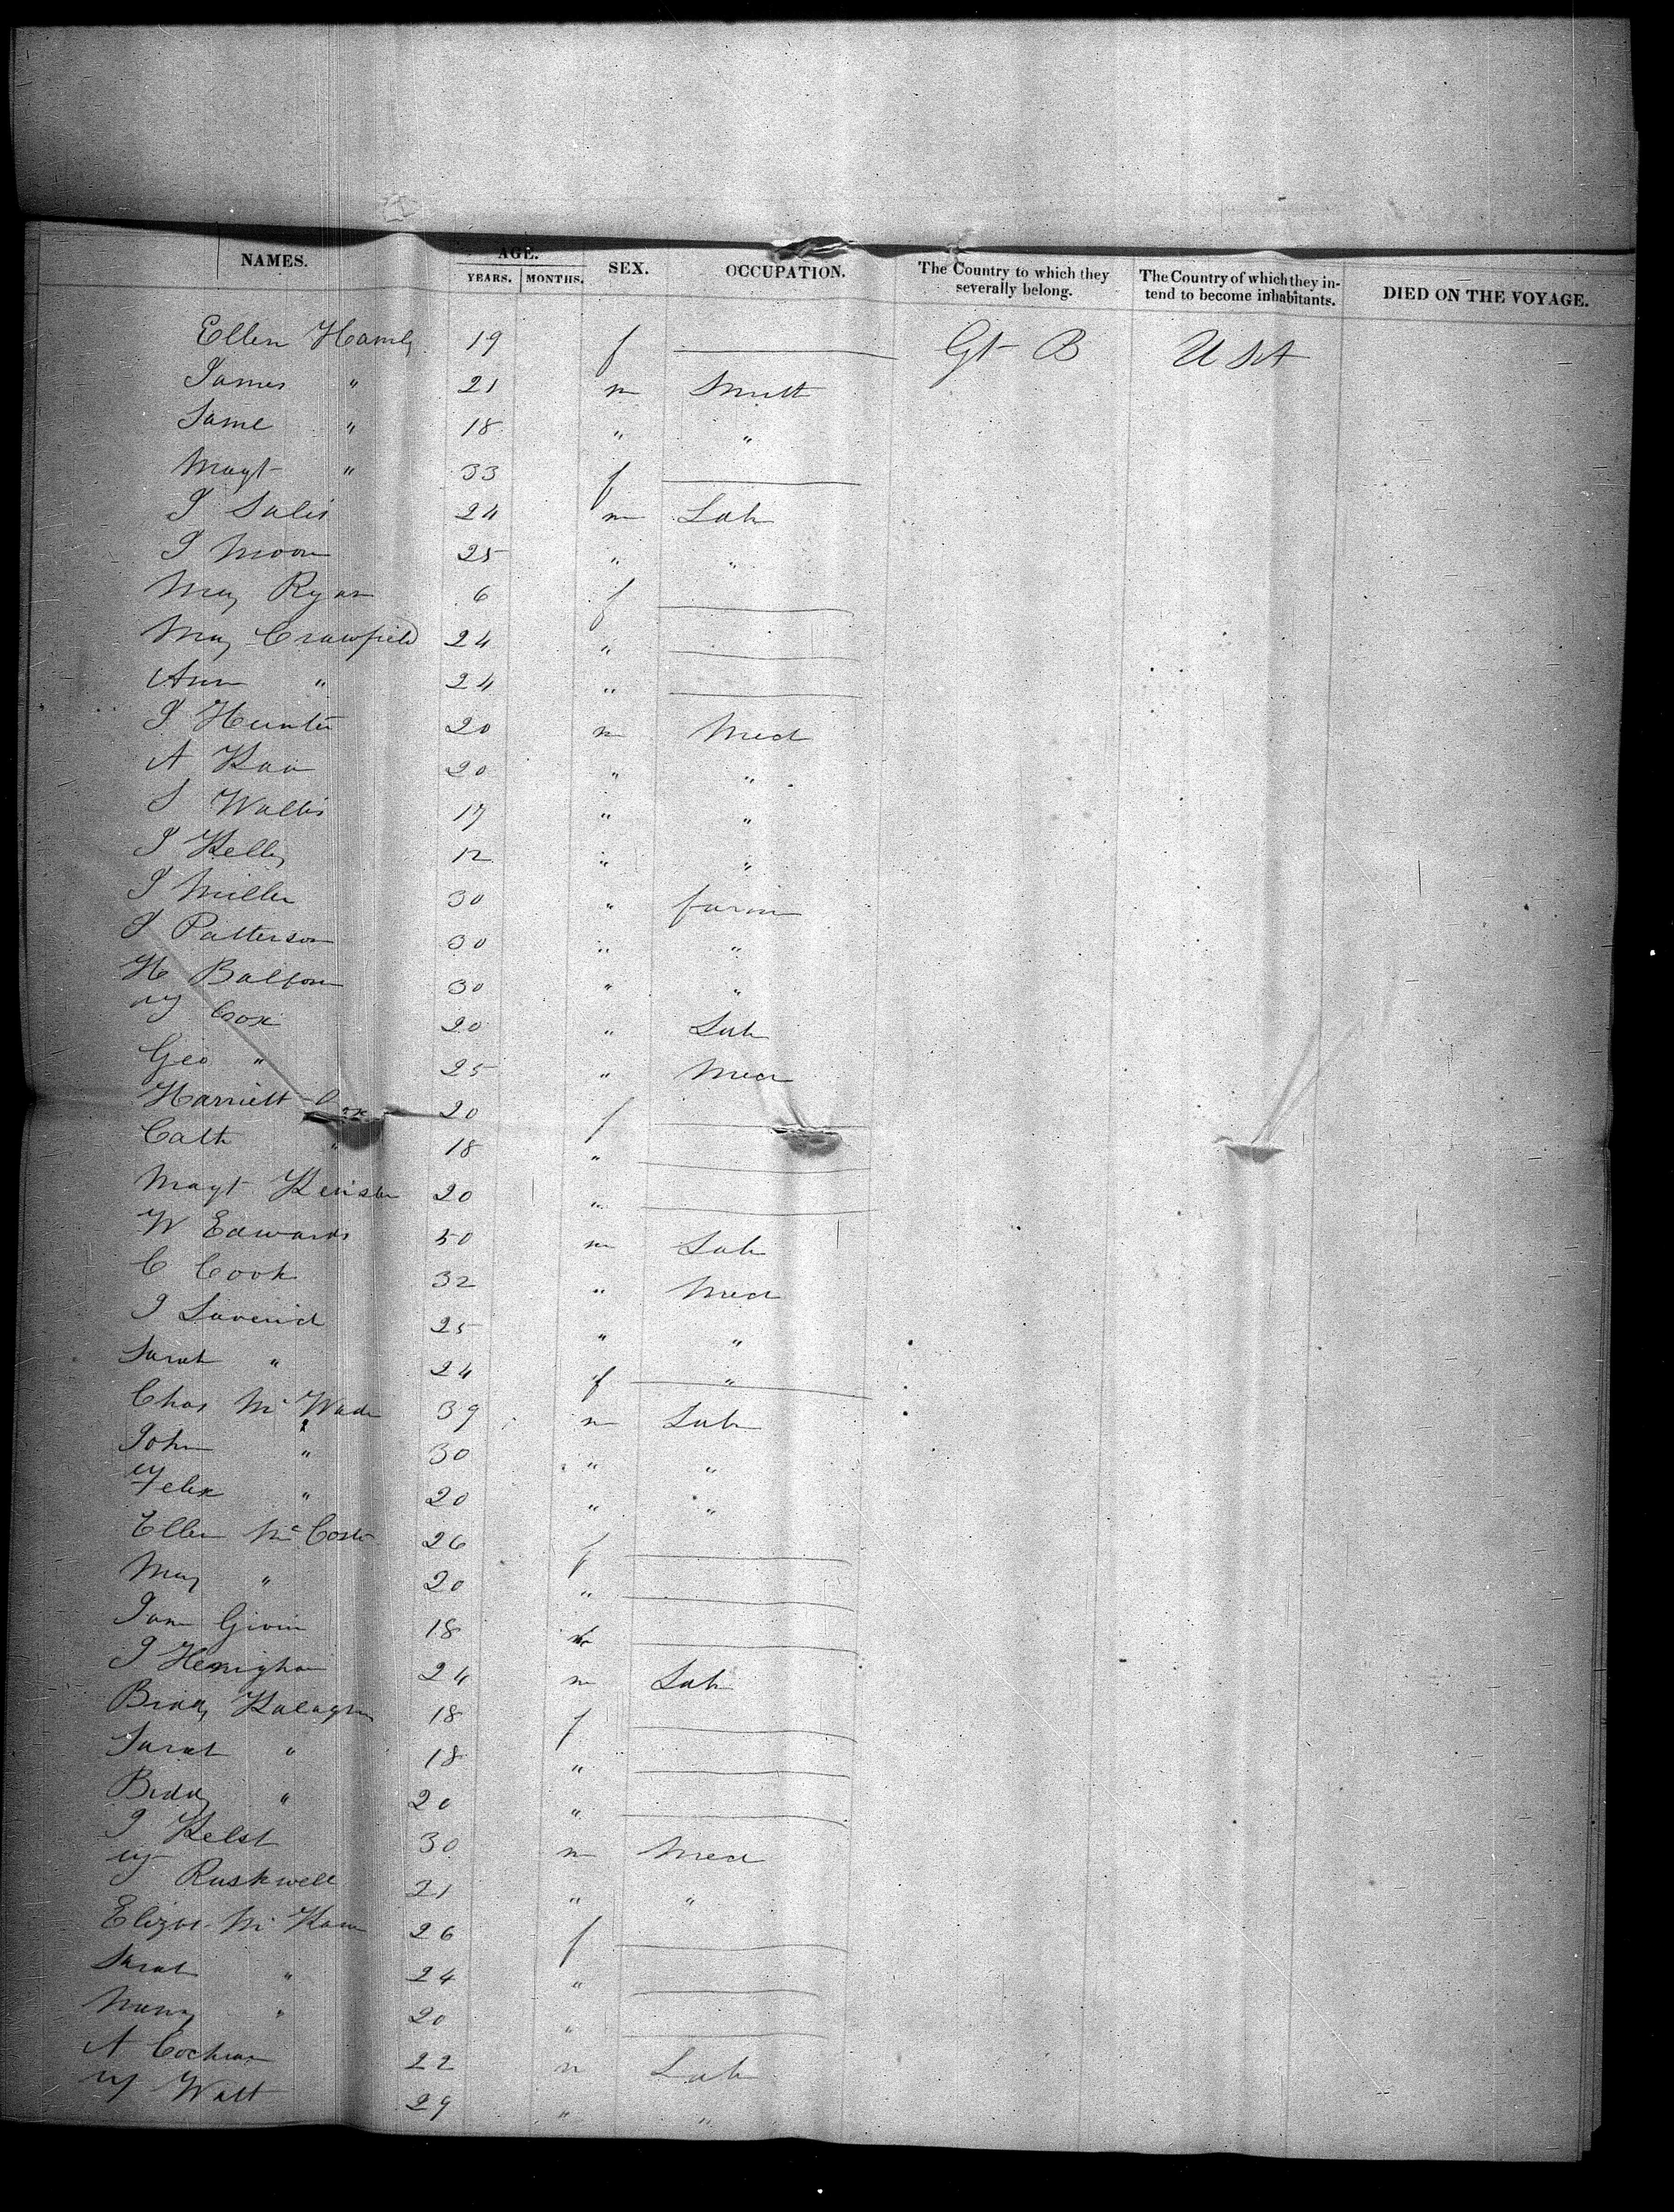 NAMES. AGE. YEARS. MONTHS. SEX. OCCUPATION. The Country to which they severally belong. The Country of which they intend to become inhabitants. DIED ON THE VOYAGE.
Ellen Hamly 19 f — Gt B USA
James " 21 m
" 18 " "
Magt " 33 f —
J 24 m Lab
J Moon 25 " "
May Ryan 6 f —
May Crawfield 24 " —
Ann " 24 " —
J Hunter 20 m Mec
A 20 " "
J Wallis 17 " "
J Kelly 12 " "
J Miller 30 " farm
J Patterson 30 " "
H Balfour 30 " "
Cox 20 " Lab
Geo " 25 " Mec
Harriett Cox 20 f —
Cath " 18 " —
Magt 20 " —
W Edwards 50 m Lab
C Cook 32 " Mec
J 25 " "
Sarah " 24 f "
Chas Mc Wade 39 m Lab
John " 30 " "
Felix " 20 " "
Ellen Mc 26 f —
May " 20 " —
Jane 18 —
J 24 m Lab
Biddy 18 f —
Sarah " 18 " —
Biddy " 20 " —
J 30 m Mec
Rushwell 21 " "
Eliza Mc 26 f —
Sarah " 24 " —
Nancy " 20 " —
A Cochran 22 m Lab
Watt 29 " "